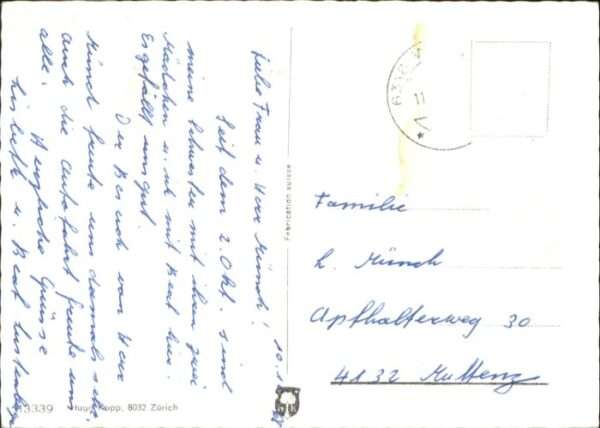 Liebe Frau u. Herr Münch!
Seit dem 2. Okt. sind
meine Schwester mit ihren zwei
Mädchen u. ich mit Beat hier.
Es gefällt uns gut
Der Besuch von Herr
Münch freute uns damals sehr
auch die Autofahrt freute uns
alle. Herzliche Grüsse
Lisbeth u. Beat
Fabrication suisse
Familie
h. Münch
Apfhalterweg 30
4132 Muttenz
3339 Hugo Kopp, 8032 Zürich